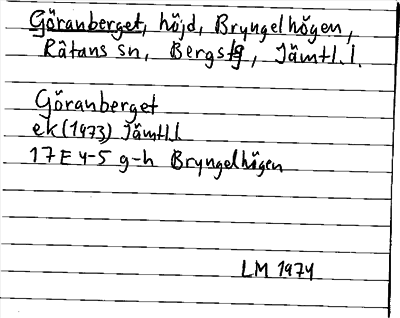 Göranberget, höjd, Bryngelhögen,
Råtans sn, Bergs tg, Jämtl.l.
Göranberget
ek (1973) Jämtl.l
17E 4-5 g-h Bryngelhögen
LM 1974